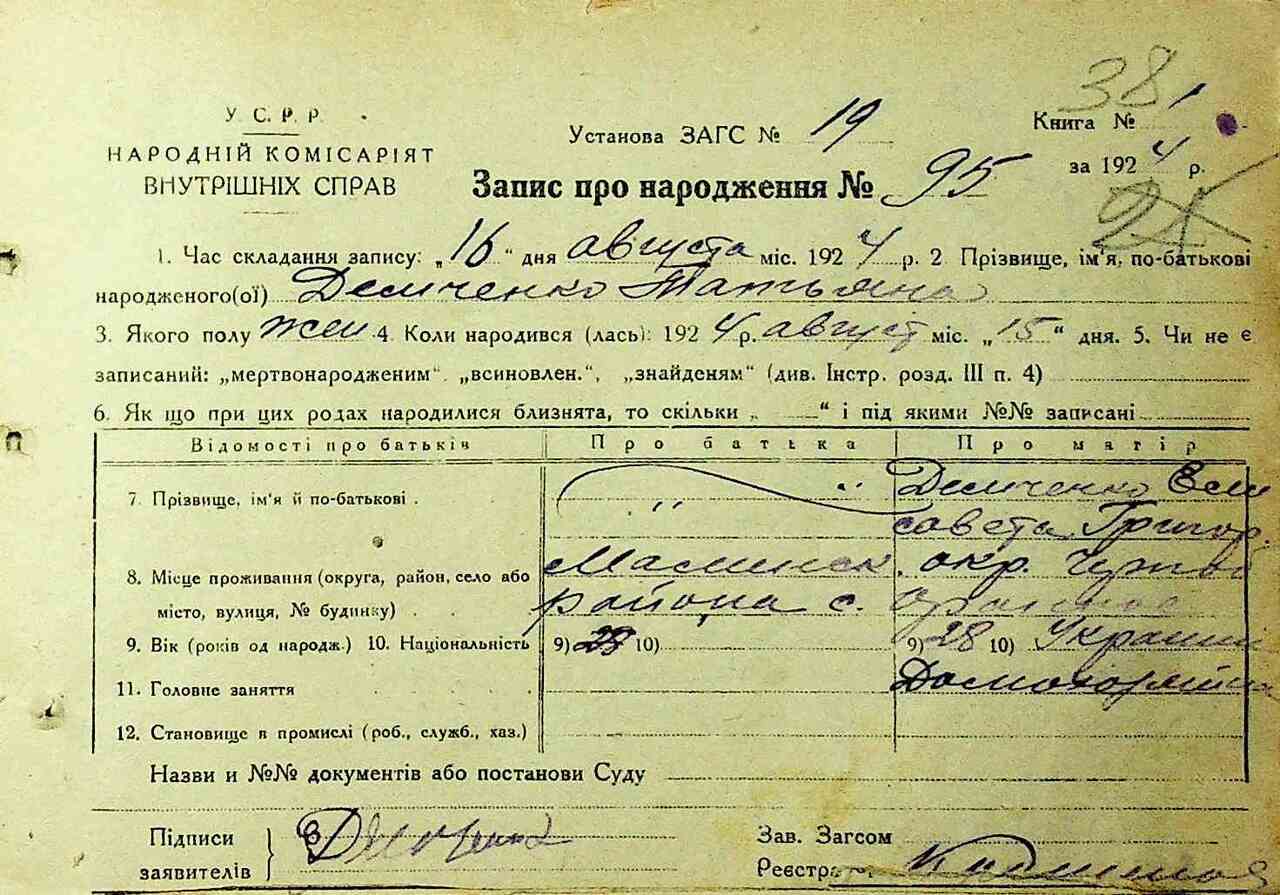 38
У. С. Р. Р.
Установа ЗАГС № 19
Книга № 1
НАРОДНІЙ КОМІСАРІЯТ
ВНУТРІШНІХ СПРАВ
за 1924 р.
Запис про народження № 95
1. Час складання запису: „16“ дня августа міс. 1924 р. 2 Прізвище, ім'я, по-батькові
народженого(ої) Демченко Татьяна
3. Якого полу жен 4. Коли народився (лась): 1924 р. август міс. „15“ дня. 5. Чи не є
записаний: „мертвонародженим“. „всиновлен.“, „знайденям“ (див. Інстр. розд. III п. 4)
6. Як що при цих родах народилися близнята, то скільки „ “ і під якими №№ записані
Відомості про батьків Про батька Про матір
7. Прізвище, ім'я й по-батькові . Демченко Ели
совета Григор.
8. Місце проживання (округа, район, село або окр.
місто, вулиця, № будинку) . района с.
9. Вік (років од народж.) 10. Національність 9) 28 10) 9) 28 10) Украин
11. Головне заняття
12. Становище в промислі (роб., служб., хаз.)
Назви и №№ документів або постанови Суду
Підписи Зав. Загсом
заявителів Реєстр